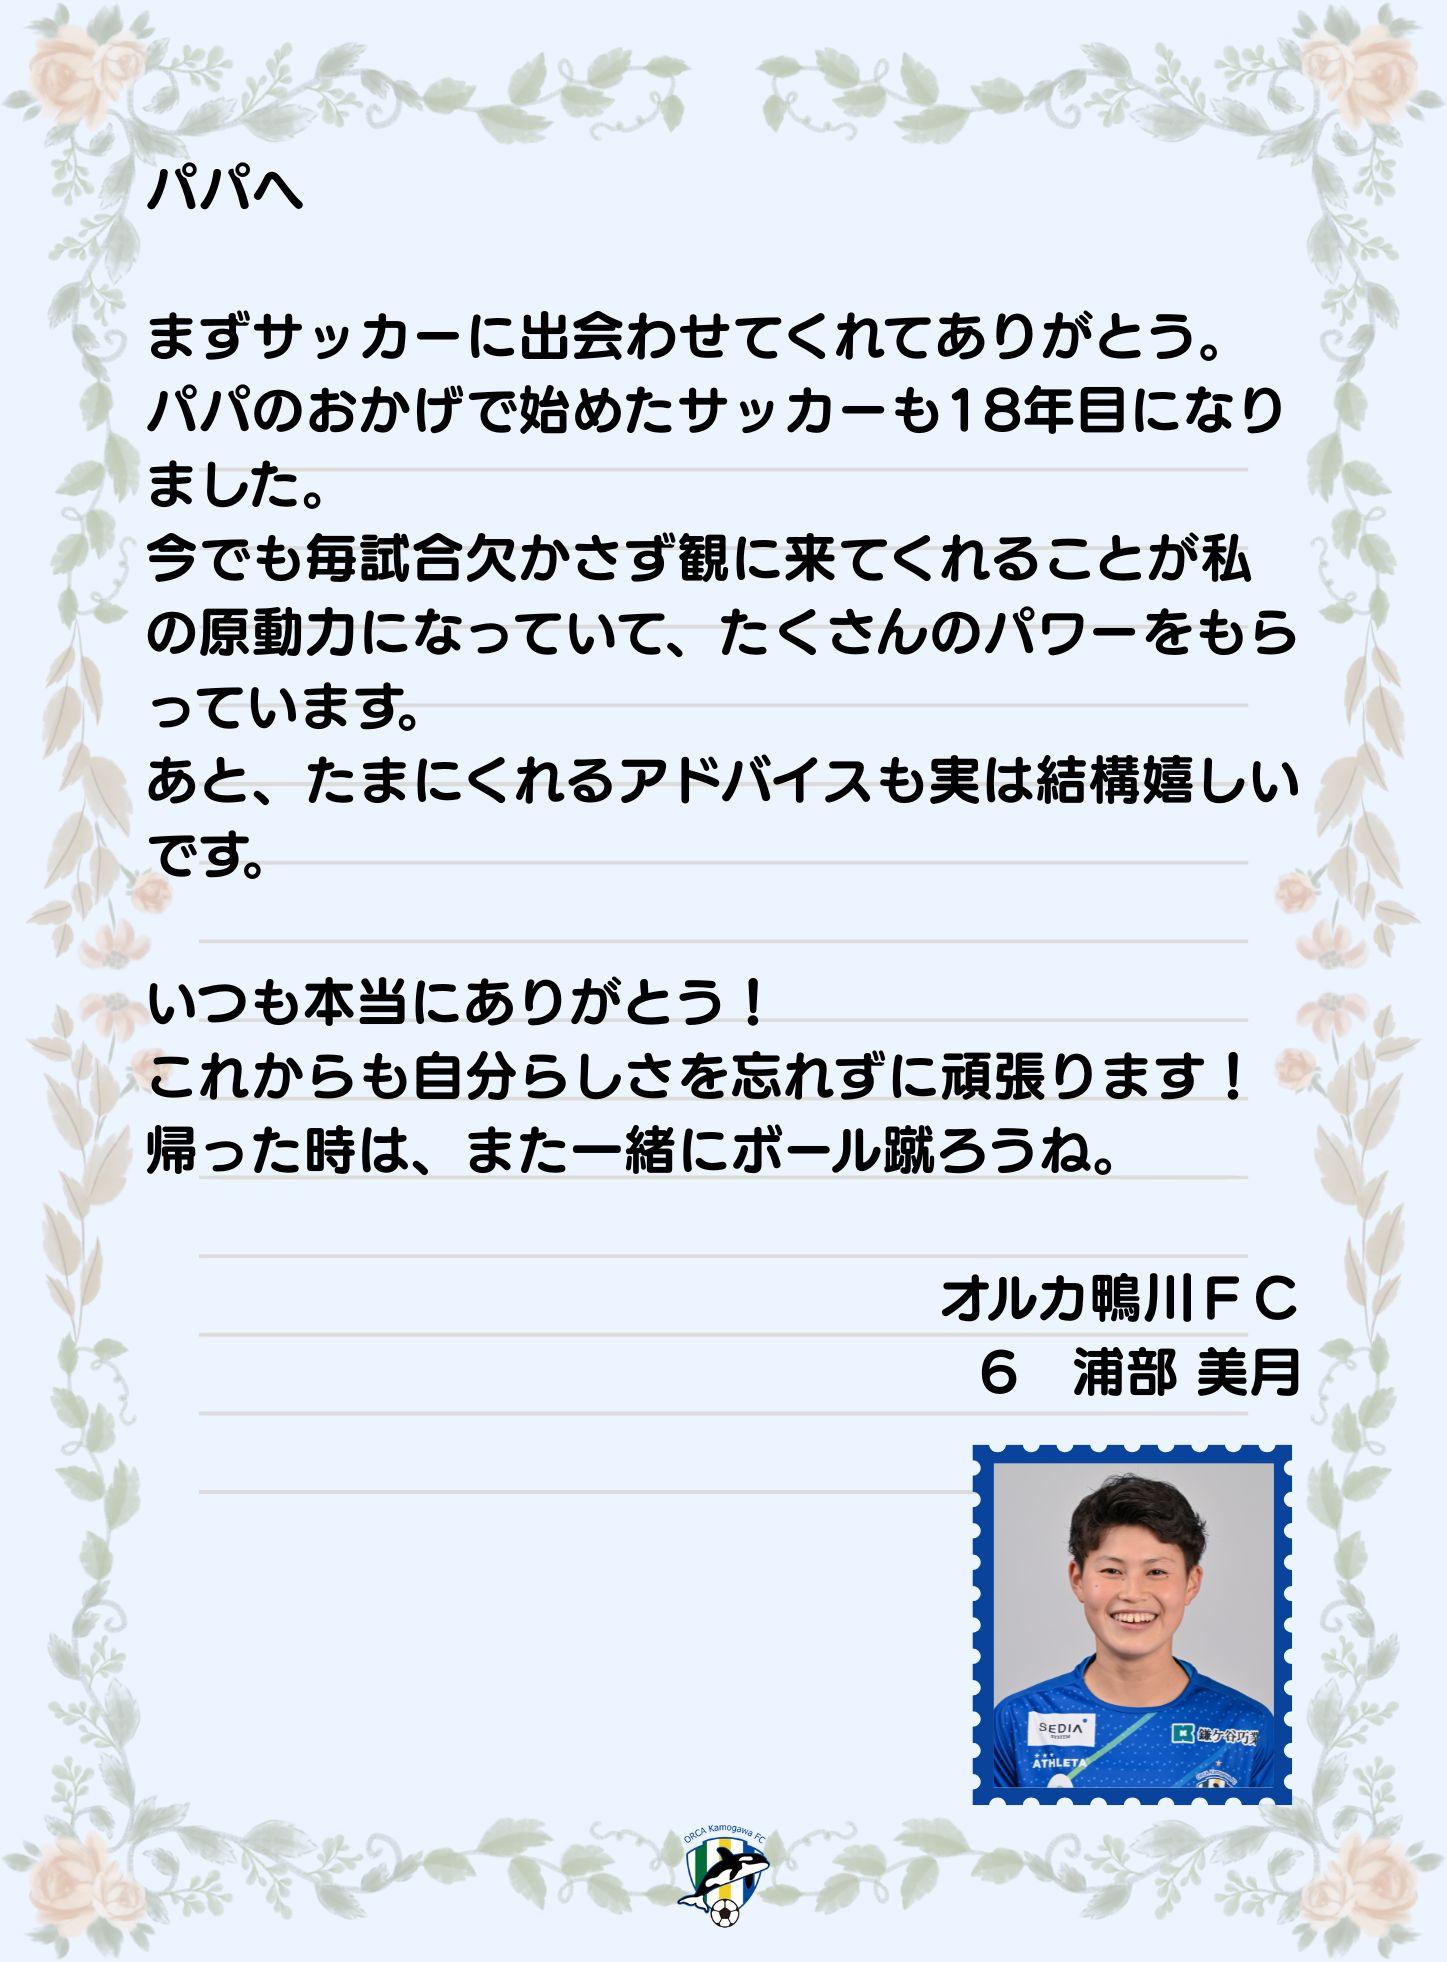 パパへ
まずサッカーに出会わせてくれてありがとう。
パパのおかげで始めたサッカーも18年目になり
ました。
今でも毎試合欠かさず観に来てくれることが私
の原動力になっていて、たくさんのパワーをもら
っています。
あと、たまにくれるアドバイスも実は結構嬉しい
です。
いつも本当にありがとう！
これからも自分らしさを忘れずに頑張ります！
帰った時は、また一緒にボール蹴ろうね。
オルカ鴨川ＦＣ
６　浦部 美月
SEDIA
SYSTEM
鎌ケ谷巧業
ATHLETA
ORCA Kamogawa FC